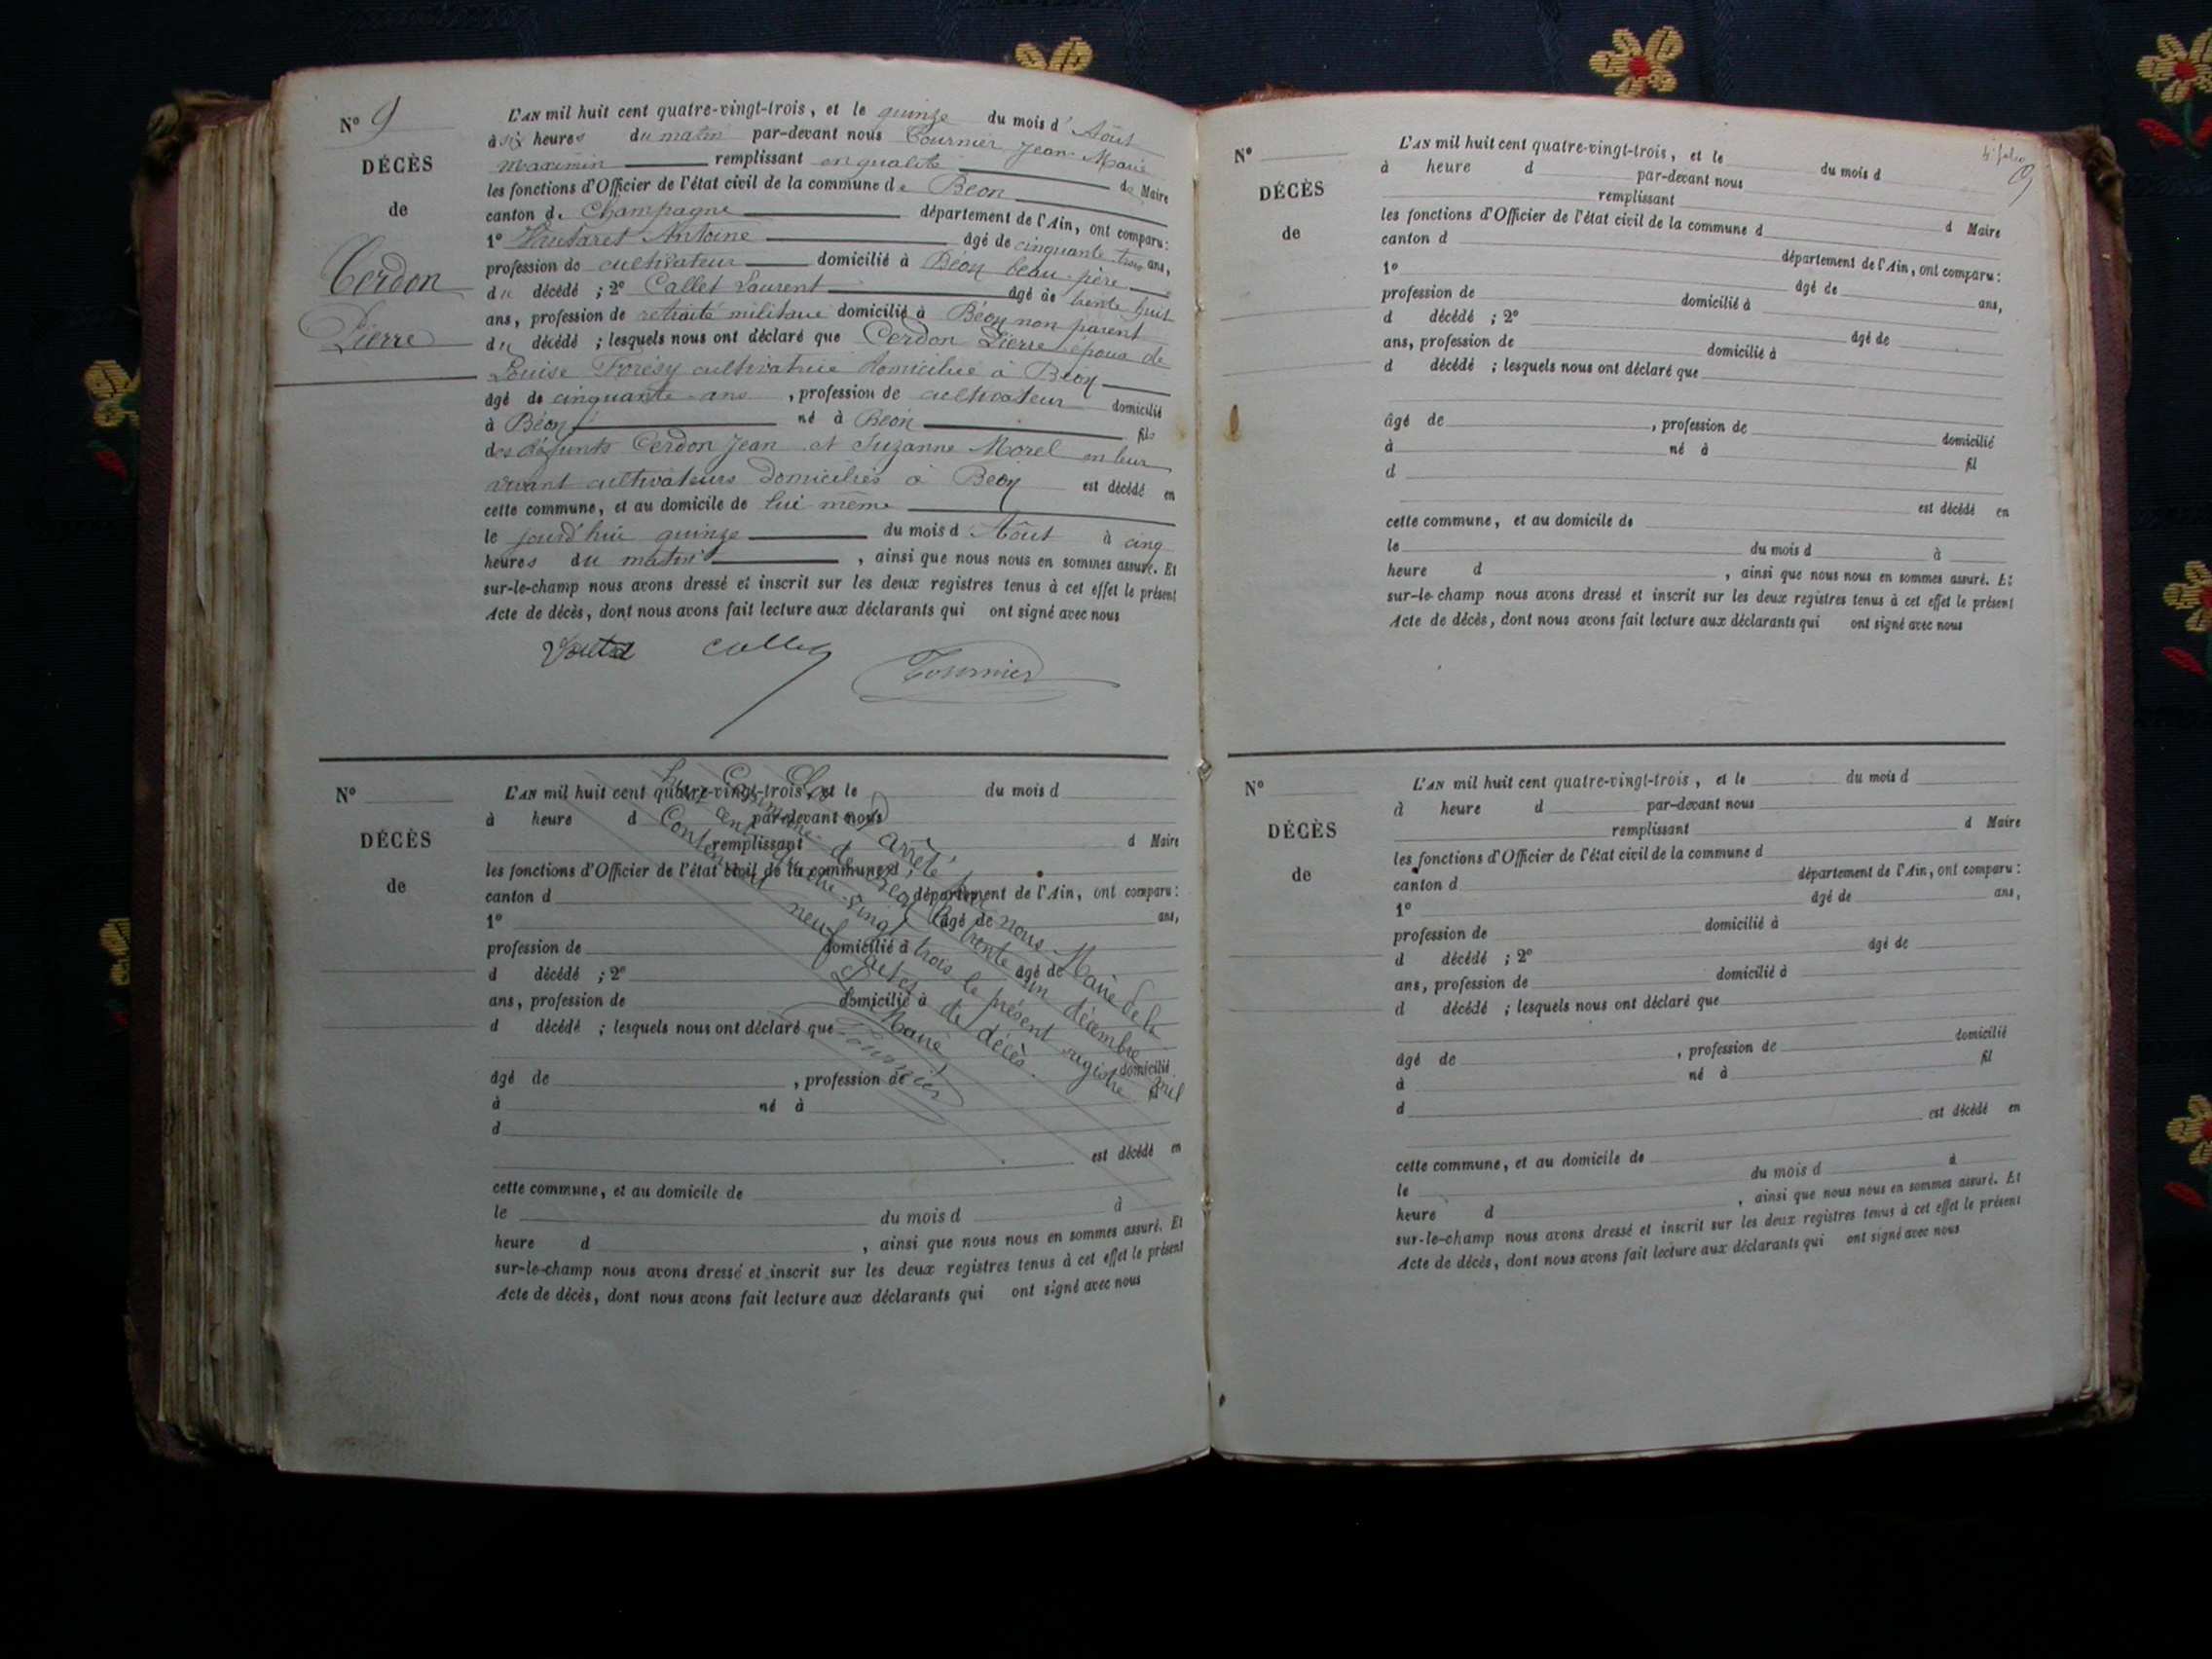 N° 9
DÉCÈS
de
Cerdon
Pierre
L'AN mil huit cent quatre-vingt-trois, et le quinze du mois d'Août
à six heures du matin par-devant nous Tournier Jean-Marie
Maximin remplissant en qualité de Maire
les fonctions d'Officier de l'état civil de la commune de Béon
canton de Champagne département de l'Ain, ont comparu :
1° Antoine âgé de cinquante trois ans,
profession de cultivateur domicilié à Béon beau-père
du décédé ; 2° Callet Laurent âgé de trente huit
ans, profession de retraité militaire domicilié à Béon non parent
du décédé ; lesquels nous ont déclaré que Cerdon Pierre époux de
Louise cultivatrice domiciliée à Béon
âgé de cinquante ans, profession de cultivateur domicilié
à Béon né à Béon fils
des défunts Cerdon Jean et Suzanne Morel en leur
vivant cultivateurs domiciliés à Béon est décédé en
cette commune, et au domicile de lui-même
le jourd'hui quinze du mois d'Août à cinq
heures du matin, ainsi que nous nous en sommes assuré. Et
sur-le-champ nous avons dressé et inscrit sur les deux registres tenus à cet effet le présent
Acte de décès, dont nous avons fait lecture aux déclarants qui ont signé avec nous
Callet Tournier
N°
DÉCÈS
de
L'AN mil huit cent quatre-vingt-trois, et le du mois d
à heure d par-devant nous
remplissant d Maire
les fonctions d'Officier de l'état civil de la commune d
canton d département de l'Ain, ont comparu :
1° âgé de ans,
profession de domicilié à
d décédé ; 2° âgé de
ans, profession de domicilié à
d décédé ; lesquels nous ont déclaré que
âgé de , profession de domicilié
à né à fil
d
est décédé en
cette commune, et au domicile de
le du mois d à
heure d , ainsi que nous nous en sommes assuré. Et
sur-le-champ nous avons dressé et inscrit sur les deux registres tenus à cet effet le présent
Acte de décès, dont nous avons fait lecture aux déclarants qui ont signé avec nous
Clos et arrêté par nous Maire de la
Commune de Béon le trente un décembre mil
huit cent quatre-vingt trois le présent registre
Contenant neuf actes de décès.
Le Maire
Tournier
4e folio
9
N°
DÉCÈS
de
L'AN mil huit cent quatre-vingt-trois, et le du mois d
à heure d par-devant nous
remplissant d Maire
les fonctions d'Officier de l'état civil de la commune d
canton d département de l'Ain, ont comparu :
1° âgé de ans,
profession de domicilié à
d décédé ; 2° âgé de
ans, profession de domicilié à
d décédé ; lesquels nous ont déclaré que
âgé de , profession de domicilié
à né à fil
d
est décédé en
cette commune, et au domicile de
le du mois d à
heure d , ainsi que nous nous en sommes assuré. Et
sur-le-champ nous avons dressé et inscrit sur les deux registres tenus à cet effet le présent
Acte de décès, dont nous avons fait lecture aux déclarants qui ont signé avec nous
N°
DÉCÈS
de
L'AN mil huit cent quatre-vingt-trois, et le du mois d
à heure d par-devant nous
remplissant d Maire
les fonctions d'Officier de l'état civil de la commune d
canton d département de l'Ain, ont comparu :
1° âgé de ans,
profession de domicilié à
d décédé ; 2° âgé de
ans, profession de domicilié à
d décédé ; lesquels nous ont déclaré que
âgé de , profession de domicilié
à né à fil
d
est décédé en
cette commune, et au domicile de
le du mois d à
heure d , ainsi que nous nous en sommes assuré. Et
sur-le-champ nous avons dressé et inscrit sur les deux registres tenus à cet effet le présent
Acte de décès, dont nous avons fait lecture aux déclarants qui ont signé avec nous